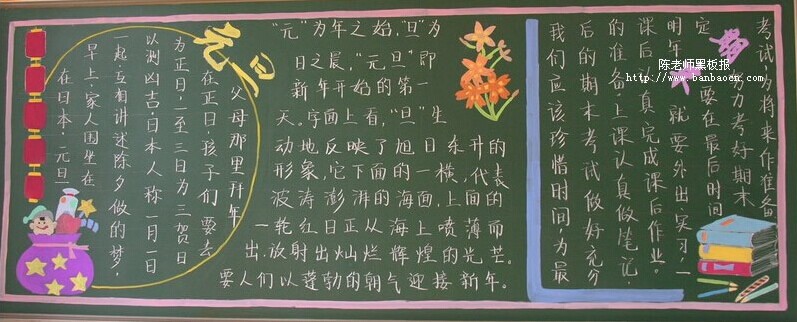 元旦
在日本,元旦
早上,家人围坐在
一起互相讲述除夕做的梦,
以测凶吉,日本人称一月一日
为正日,一至三日为三贺日
在正日,孩子们要去
父母那里拜年
“元”为年之始,“旦”为
日之晨,“元旦”即
新年开始的第一
天。字面上看,“旦”生
动地反映了旭日东升的
形象,它下面的一横,代表
波涛澎湃的海面,上面的
一轮红日正从海上喷薄而
出,放射出灿烂辉煌的光芒。
要人们以蓬勃的朝气迎接新年。
我们应该珍惜时间,为最
后的期末考试做好充分
的准备,上课认真做笔记,
课后认真完成课后作业。
明年就要外出实习,一
定要在最后时间
努力考好期末
考试,为将来作准备
陈老师黑板报
http://www.banbaoen.com